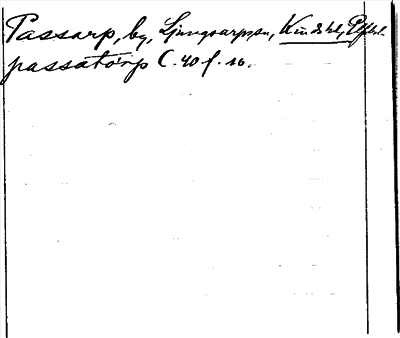 Passarp, by, Ljungsarps sn, Kinds hd, Elfsb.l.
passatorp C. 40 f. 10.